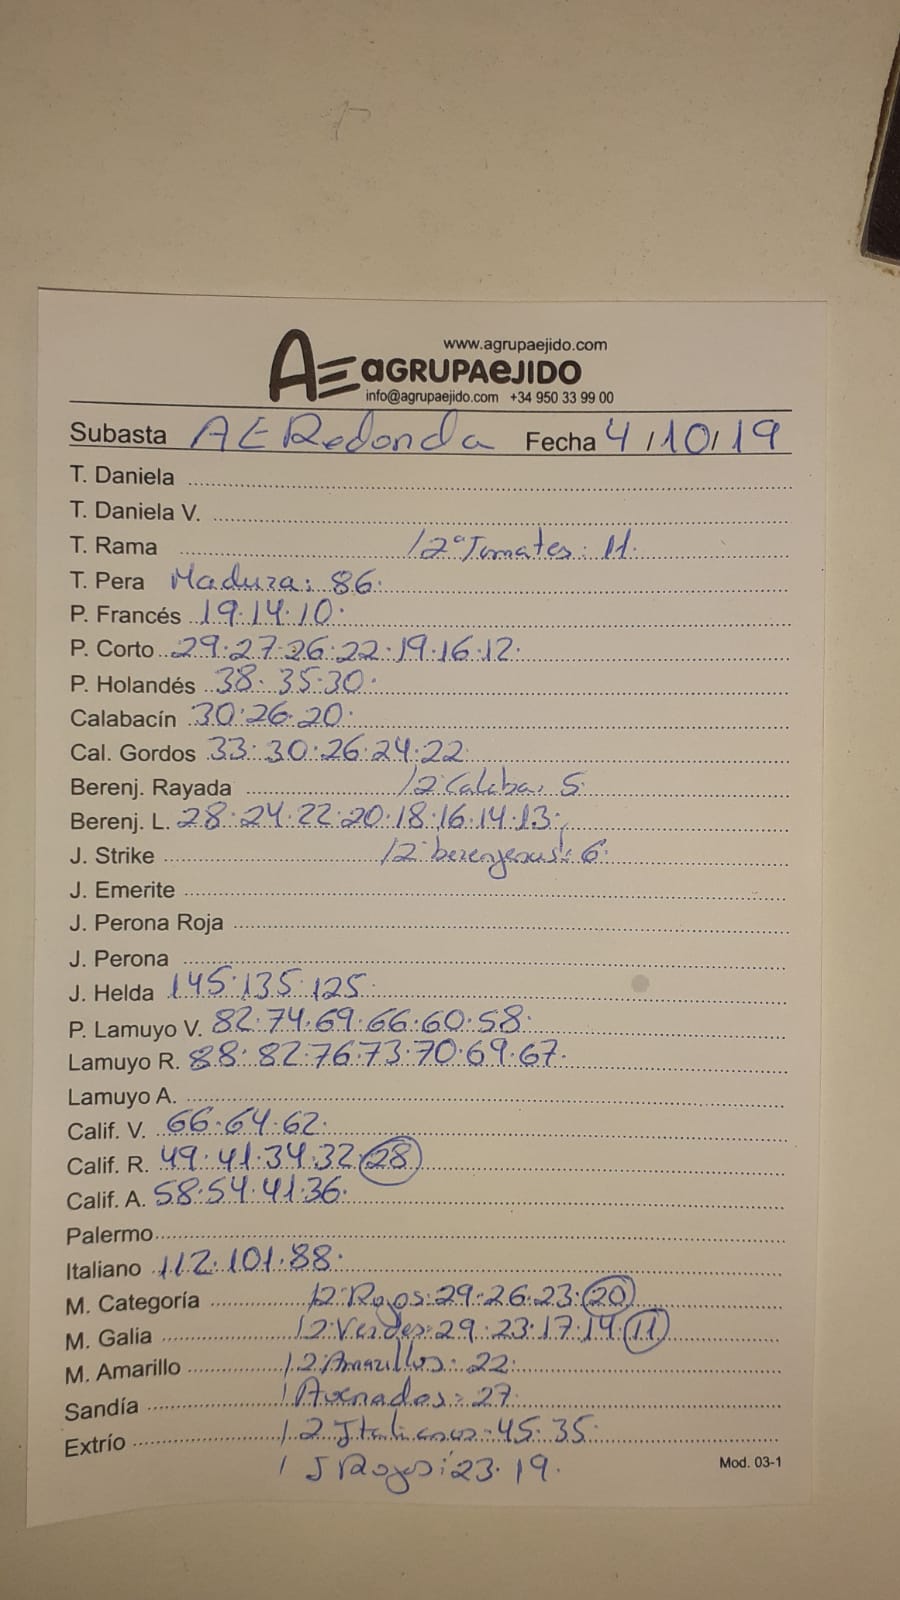 www.agrupaejido.com
AE aGRUPAeJIDO
info@agrupaejido.com +34 950 33 99 00
Subasta AE Redonda Fecha 4/10/19
T. Daniela
T. Daniela V.
T. Rama /2ª Tomates: 11.
T. Pera Madura: 86.
P. Francés 19.14.10.
P. Corto 29.27.26.22.19.16.12.
P. Holandés 38.35.30.
Calabacín 30.26.20.
Cal. Gordos 33.30.26.24.22
Berenj. Rayada /2 Calaba. 5
Berenj. L. 28.24.22.20.18.16.14.13.
J. Strike /2 berenjenas: 6.
J. Emerite
J. Perona Roja
J. Perona
J. Helda 145.135.125
P. Lamuyo V. 82.74.69.66.60.58.
Lamuyo R. 88.82.76.73.70.69.67.
Lamuyo A.
Calif. V. 66.64.62.
Calif. R. 49.41.34.32.28
Calif. A. 58.54.41.36.
Palermo
Italiano 112.101.88.
M. Categoría /2 Rojos: 29.26.23.20
M. Galia /2 Verdes: 29.23.17.14.11
M. Amarillo /2 Amarillos: 22.
Sandía / = 27
Extrío /2 Italianos = 45.35.
/ J Rojos: 23.19.
Mod. 03-1